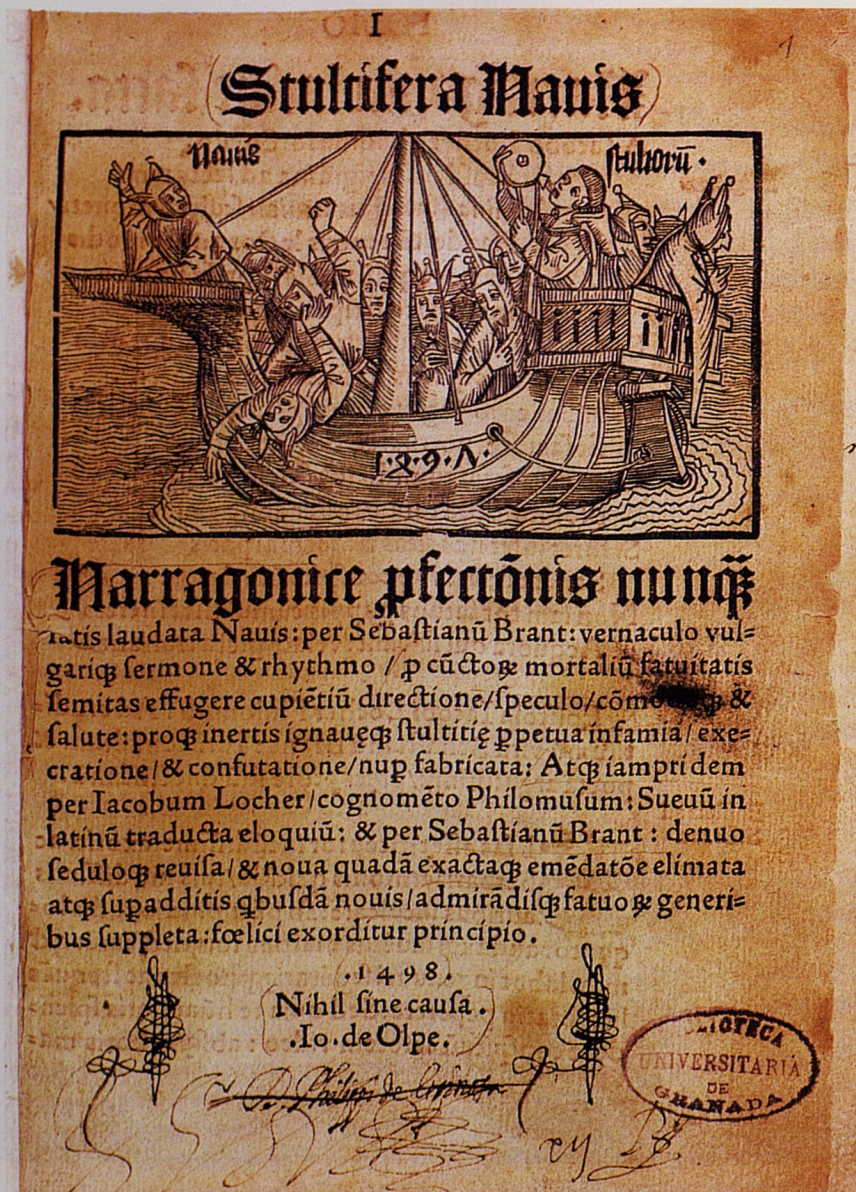 I
1
(Stultifera Nauis)
Nauis stultorū.
1.4.9.Λ.
Narragonice ꝓfectōnis nunq̃ꝫ
satis laudata Nauis: per Sebaſtianū Brant: vernaculo vul=
gariqꝫ ſermone & rhythmo / ꝓ cūctoꝝ mortaliū fatuitatis
ſemitas effugere cupiētiū directione/ſpeculo/cōmodoqꝫ &
ſalute: proqꝫ inertis ignauęqꝫ ſtultitię ꝑpetua infamia/exe=
cratione/& confutatione/nuꝑ fabricata: Atqꝫ iampridem
per Iacobum Locher/cognomēto Philomuſum: Sueuū in
latinū traducta eloquiū: & per Sebaſtianū Brant: denuo
ſeduloqꝫ reuiſa/& noua quadā exactaqꝫ emēdatōe elimata
atqꝫ ſuꝑadditis qbuſdā nouis/admirādiſqꝫ fatuoꝝ generi=
bus ſuppleta: fœlici exorditur principio.
.1498.
Nihil ſine cauſa.
.Io.de Olpe.
BIBLIOTECA
UNIVERSITARIA
DE
GRANADA